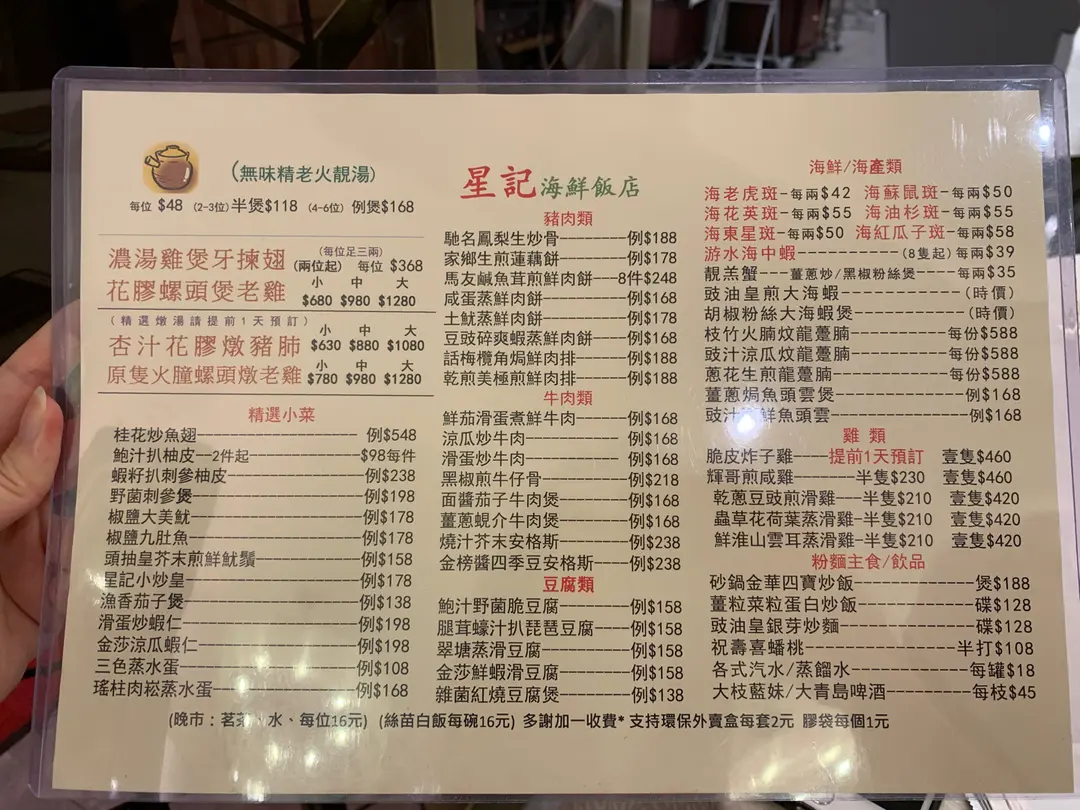 (無味精老火靚湯)
每位 $48 (2-3位)半煲$118 (4-6位) 例煲$168
濃湯雞煲牙揀翅 (每位足三兩) (兩位起) 每位 $368
花膠螺頭煲老雞 小 $680 中 $980 大 $1280
(精選燉湯請提前1天預訂)
杏汁花膠燉豬肺 小 $630 中 $880 大 $1080
原隻火朣螺頭燉老雞 小 $780 中 $980 大 $1280
精選小菜
桂花炒魚翅 例$548
鮑汁扒柚皮--2件起 $98每件
蝦籽扒刺參柚皮 例$238
野菌刺參煲 例$198
椒鹽大美魷 例$178
椒鹽九肚魚 例$178
頭抽皇芥末煎鮮魷鬚 例$158
星記小炒皇 例$178
漁香茄子煲 例$138
滑蛋炒蝦仁 例$198
金莎涼瓜蝦仁 例$198
三色蒸水蛋 例$108
瑤柱肉崧蒸水蛋 例$168
星記海鮮飯店
豬肉類
馳名鳳梨生炒骨 例$188
家鄉生煎蓮藕餅 例$178
馬友鹹魚茸煎鮮肉餅 8件$248
咸蛋蒸鮮肉餅 例$168
土魷蒸鮮肉餅 例$178
豆豉碎爽蝦蒸鮮肉餅 例$168
話梅欖角焗鮮肉排 例$188
乾煎美極煎鮮肉排 例$188
牛肉類
鮮茄滑蛋煮鮮牛肉 例$168
涼瓜炒牛肉 例$168
滑蛋炒牛肉 例$168
黑椒煎牛仔骨 例$218
面醬茄子牛肉煲 例$168
薑蔥蜆介牛肉煲 例$168
燒汁芥末安格斯 例$238
金榜醬四季豆安格斯 例$238
豆腐類
鮑汁野菌脆豆腐 例$158
腿茸蠔汁扒琵琶豆腐 例$158
翠塘蒸滑豆腐 例$158
金莎鮮蝦滑豆腐 例$158
雜菌紅燒豆腐煲 例$138
海鮮/海產類
海老虎斑-每兩$42 海蘇鼠斑-每兩$50
海花英斑-每兩$55 海油杉斑-每兩$55
海東星斑-每兩$50 海紅瓜子斑-每兩$58
游水海中蝦 (8隻起)每兩$39
靚羔蟹 薑蔥炒/黑椒粉絲煲 每兩$35
豉油皇煎大海蝦 (時價)
胡椒粉絲大海蝦煲 (時價)
枝竹火腩炆龍躉腩 每份$588
豉汁涼瓜炆龍躉腩 每份$588
蔥花生煎龍躉腩 每份$588
薑蔥焗魚頭雲煲 例$168
豉汁 鮮魚頭雲 例$168
雞 類
脆皮炸子雞 提前1天預訂 壹隻$460
輝哥煎咸雞 半隻$230 壹隻$460
乾蔥豆豉煎滑雞 半隻$210 壹隻$420
蟲草花荷葉蒸滑雞-半隻$210 壹隻$420
鮮淮山雲耳蒸滑雞-半隻$210 壹隻$420
粉麵主食/飲品
砂鍋金華四寶炒飯 煲$188
薑粒菜粒蛋白炒飯 碟$128
豉油皇銀芽炒麵 碟$128
祝壽喜蟠桃 半打$108
各式汽水/蒸餾水 每罐$18
大枝藍妹/大青島啤酒 每枝$45
(晚市：茗茶 水、每位16元) (絲苗白飯每碗16元) 多謝加一收費* 支持環保外賣盒每套2元 膠袋每個1元